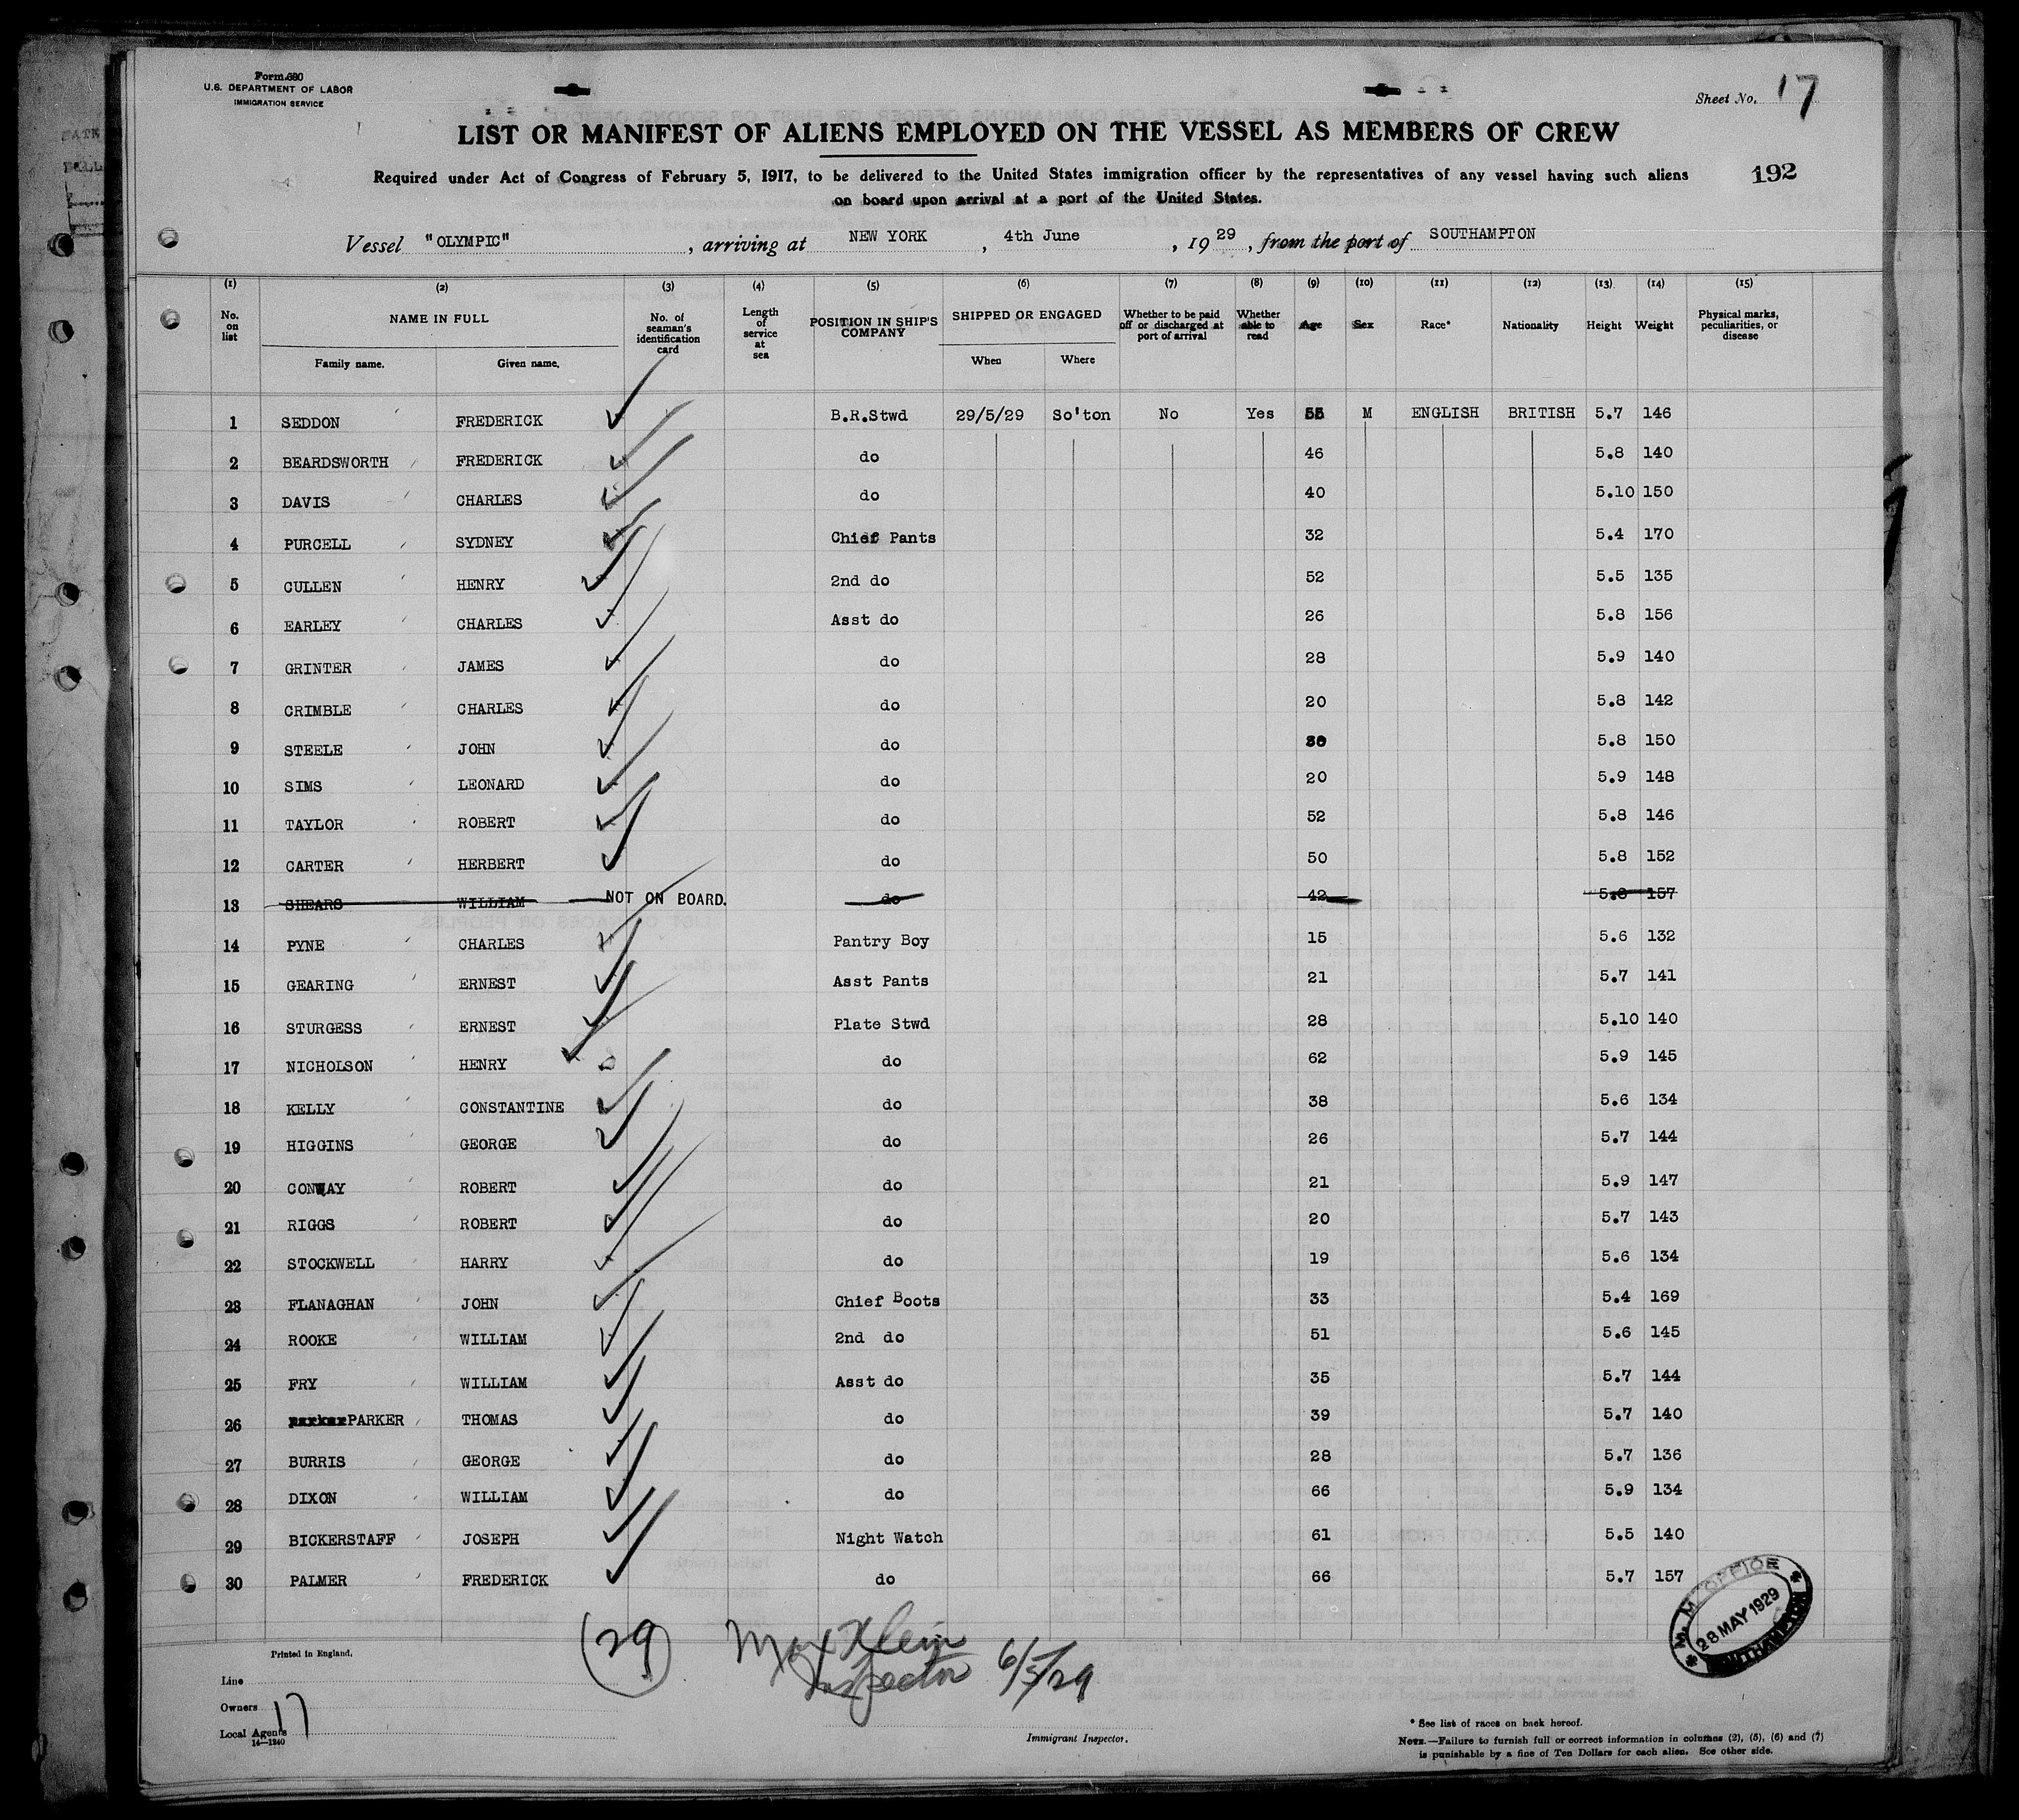 Form 680
U.S. DEPARTMENT OF LABOR
IMMIGRATION SERVICE
Sheet No. 17
LIST OR MANIFEST OF ALIENS EMPLOYED ON THE VESSEL AS MEMBERS OF CREW
192
Required under Act of Congress of February 5, 1917, to be delivered to the United States immigration officer by the representatives of any vessel having such aliens
on board upon arrival at a port of the United States.
Vessel "OLYMPIC", arriving at NEW YORK, 4th June, 1929, from the port of SOUTHAMPTON
(1) (2) (3) (4) (5) (6) (7) (8) (9) (10) (11) (12) (13) (14) (15)
No. on list NAME IN FULL No. of seaman's identification card Length of service at sea POSITION IN SHIP'S COMPANY SHIPPED OR ENGAGED Whether to be paid off or discharged at port of arrival Whether able to read Age Sex Race* Nationality Height Weight Physical marks, peculiarities, or disease
Family name. Given name. When Where
1 SEDDON FREDERICK B.R.Stwd 29/5/29 So'ton No Yes 55 M ENGLISH BRITISH 5.7 146
2 BEARDSWORTH FREDERICK do 46 5.8 140
3 DAVIS CHARLES do 40 5.10 150
4 PURCELL SYDNEY Chief Pants 32 5.4 170
5 CULLEN HENRY 2nd do 52 5.5 135
6 EARLEY CHARLES Asst do 26 5.8 156
7 GRINTER JAMES do 28 5.9 140
8 CRIMBLE CHARLES do 20 5.8 142
9 STEELE JOHN do 5.8 150
10 SIMS LEONARD do 20 5.9 148
11 TAYLOR ROBERT do 52 5.8 146
12 CARTER HERBERT do 50 5.8 152
13 SHEARS WILLIAM NOT ON BOARD. do 42 5.8 157
14 PYNE CHARLES Pantry Boy 15 5.6 132
15 GEARING ERNEST Asst Pants 21 5.7 141
16 STURGESS ERNEST Plate Stwd 28 5.10 140
17 NICHOLSON HENRY do 62 5.9 145
18 KELLY CONSTANTINE do 38 5.6 134
19 HIGGINS GEORGE do 26 5.7 144
20 CONWAY ROBERT do 21 5.9 147
21 RIGGS ROBERT do 20 5.7 143
22 STOCKWELL HARRY do 19 5.6 134
23 FLANAGHAN JOHN Chief Boots 33 5.4 169
24 ROOKE WILLIAM 2nd do 51 5.6 145
25 FRY WILLIAM Asst do 35 5.7 144
26 parker PARKER THOMAS do 39 5.7 140
27 BURRIS GEORGE do 28 5.7 136
28 DIXON WILLIAM do 66 5.9 134
29 BICKERSTAFF JOSEPH Night Watch 61 5.5 140
30 PALMER FREDERICK do 66 5.7 157
M. M. OFFICE
28 MAY 1929
SOUTHAMPTON
(29) Max Klein
Inspector 6/5/29
Printed in England.
Line
Owners
17
Local Agents
14—1240
Immigrant Inspector.
* See list of races on back hereof.
NOTE.—Failure to furnish full or correct information in columns (2), (5), (6) and (7)
is punishable by a fine of Ten Dollars for each alien. See other side.